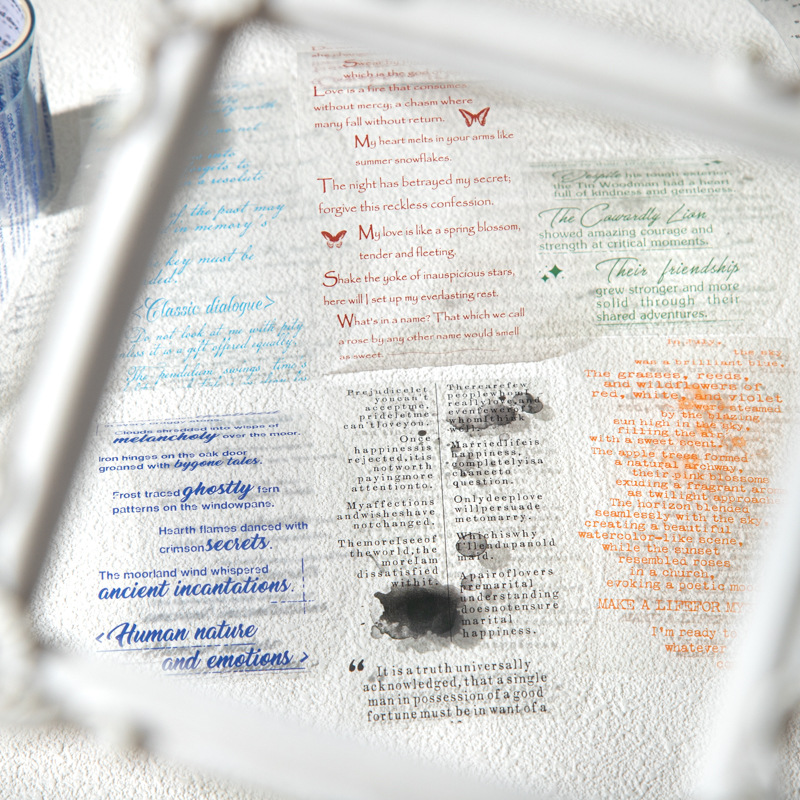 of the past may
in memory's
key must be
<Classic dialogue>
Do not look at me with pity,
it is a gift offered equally.
which is the
Love is a fire that consumes
without mercy; a chasm where
many fall without return.
My heart melts in your arms like
summer snowflakes.
The night has betrayed my secret;
forgive this reckless confession.
My love is like a spring blossom,
tender and fleeting.
Shake the yoke of inauspicious stars,
here will I set up my everlasting rest.
What's in a name? That which we call
a rose by any other name would smell
as sweet.
Despite his tough exterior,
the Tin Woodman had a heart
full of kindness and gentleness.
The Cowardly Lion
showed amazing courage and
strength at critical moments.
Their friendship
grew stronger and more
solid through their
shared adventures.
Clouds shredded into wisps of
melancholy over the moor.
Iron hinges on the oak door
groaned with bygone tales.
Frost traced ghostly fern
patterns on the windowpans.
Hearth flames danced with
crimson secrets.
The moorland wind whispered
ancient incantations.
<Human nature
and emotions>
Prejudicelet
youcan't
acceptme,
prideletme
can'tloveyou.
Once
happinessis
rejected,itis
notworth
payingmore
attentionto.
Myaffections
andwisheshave
notchanged.
ThemoreIseeof
theworld,the
moreIam
dissatisfied
withit.
Therearefew
peoplewhom
reallylove,and
evenfewer
whom
Marriedlifeis
happiness,
completelyisa
chanceto
question.
Onlydeeplove
willpersuade
metomarry.
Whichiswhy
I'llendupanold
maid.
Apairoflovers
premarital
understanding
doesnotensure
marital
happiness.
“ It is a truth universally
acknowledged, that a single
man in possession of a good
fortune must be in want of a
the sky
was a brilliant blue.
The grasses, reeds,
and wildflowers of
red, white, and violet
steamed
by the blazing
sun high in the sky,
filling the air
with a sweet scent.
The apple trees formed
a natural archway,
their pink blossoms
exuding a fragrant
as twilight approached
The horizon blended
seamlessly with the sky
creating a beautiful
watercolor-like scene,
while the sunset
resembled roses
in a church,
evoking a poetic
MAKE A LIFEFOR M
I'm ready to
whatever